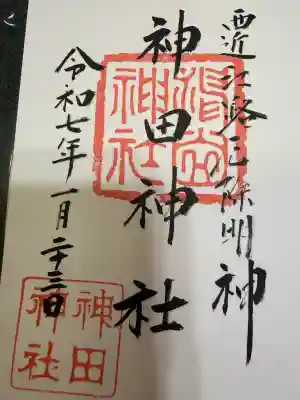 西近江路厄除明神
神田神社
令和七年一月二十二日
神社
神田
神社